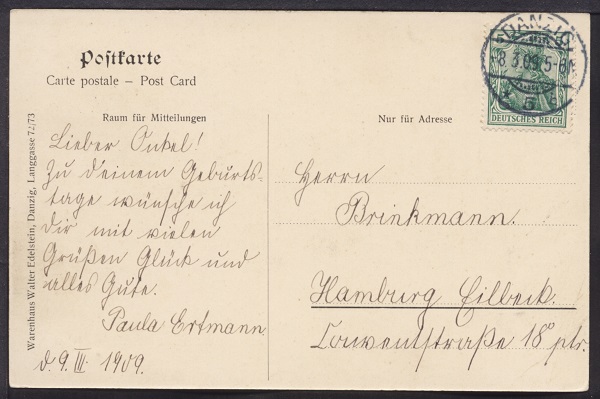 Postkarte
Carte postale – Post Card
Raum für Mitteilungen
Nur für Adresse
Warenhaus Walter Edelstein, Danzig, Langgasse 72/73
DANZIG
8.3.09.5-6N
5
DEUTSCHES REICH
Lieber Onkel!
Zu deinem Geburts-
tage wünsche ich
dir mit vielen
Grüßen Glück und
alles Gute.
Paula Ertmann.
d. 9. III. 1909.
Herrn
Brinkmann.
Hamburg Eilbeck.
Conventstraße 18 ptr.